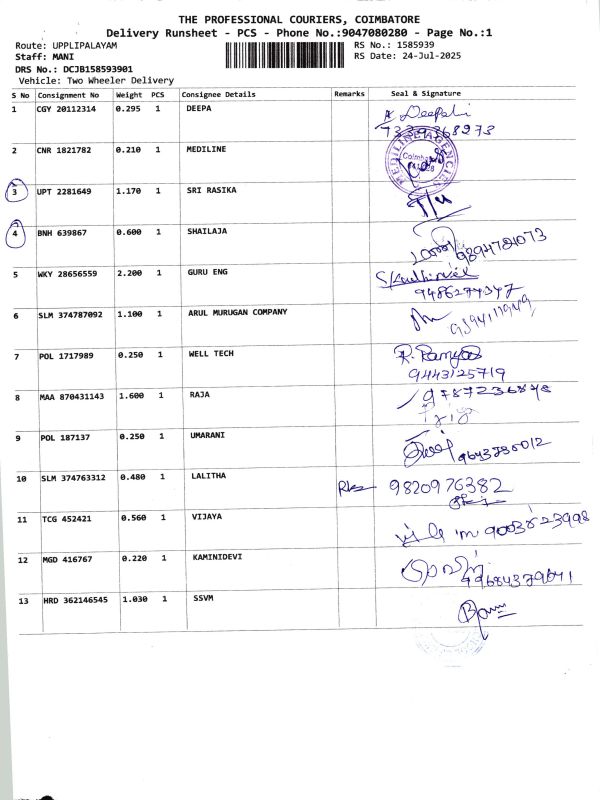 THE PROFESSIONAL COURIERS, COIMBATORE
Delivery Runsheet - PCS - Phone No.:9047080280 - Page No.:1
Route: UPPLIPALAYAM RS No.: 1585939
Staff: MANI RS Date: 24-Jul-2025
DRS No.: DCJB158593901
Vehicle: Two Wheeler Delivery
S No Consignment No Weight PCS Consignee Details Remarks Seal & Signature
1 CGY 20112314 0.295 1 DEEPA Deepahi
2 CNR 1821782 0.210 1 MEDILINE MEDILINE AGENCIES
3 UPT 2281649 1.170 1 SRI RASIKA
4 BNH 639867 0.600 1 SHAILAJA
5 WKY 28656559 2.200 1 GURU ENG
9486274347
6 SLM 374787092 1.100 1 ARUL MURUGAN COMPANY
7 POL 1717989 0.250 1 WELL TECH R. Ramya
9443125719
8 MAA 870431143 1.600 1 RAJA 9787236848
9 POL 187137 0.250 1 UMARANI
10 SLM 374763312 0.480 1 LALITHA 9820976382
11 TCG 452421 0.560 1 VIJAYA
12 MGD 416767 0.220 1 KAMINIDEVI
13 HRD 362146545 1.030 1 SSVM